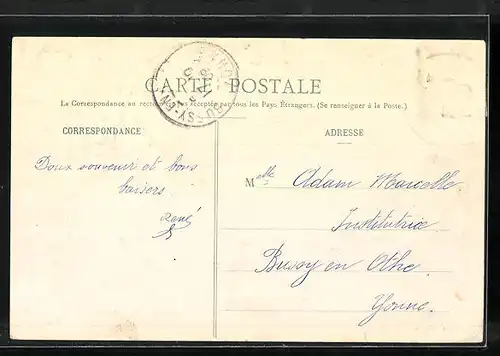 CARTE POSTALE
La Correspondance au recto n'est pas acceptée par tous les Pays Étrangers. (Se renseigner à la Poste.)
CORRESPONDANCE
ADRESSE
Doux souvenir et bons
baisers
René
Melle Adam Marcelle
Institutrice
Bussy en Othe
Yonne.